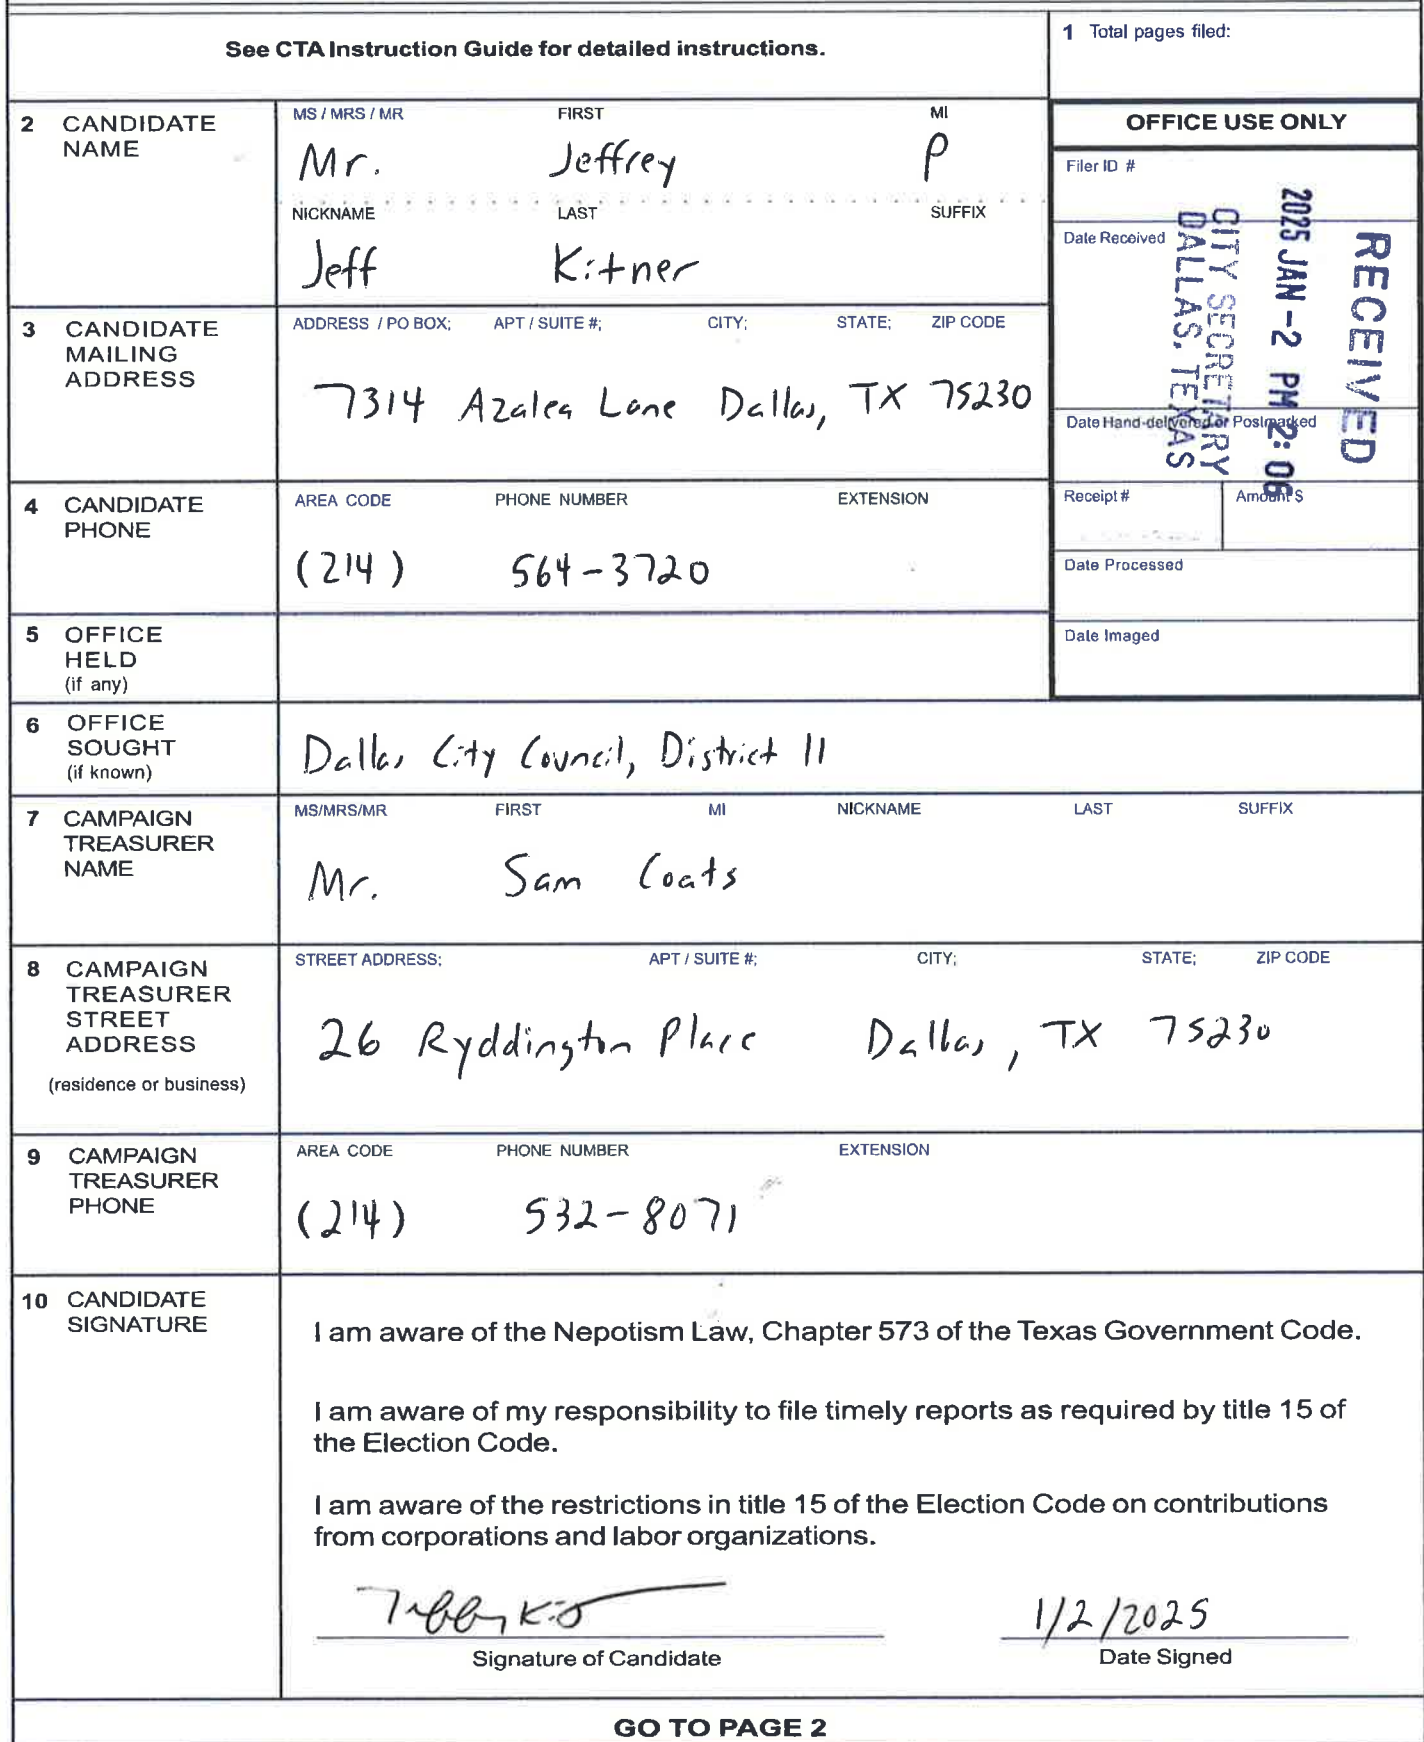 See CTA Instruction Guide for detailed instructions.
1 Total pages filed:
2 CANDIDATE NAME
MS / MRS / MR FIRST MI
Mr. Jeffrey P
NICKNAME LAST SUFFIX
Jeff Kitner
OFFICE USE ONLY
Filer ID #
Date Received
Date Hand-delivered or Postmarked
Receipt # Amount $
Date Processed
Date Imaged
RECEIVED
2025 JAN -2 PM 2: 06
CITY SECRETARY
DALLAS, TEXAS
3 CANDIDATE MAILING ADDRESS
ADDRESS / PO BOX; APT / SUITE #; CITY; STATE; ZIP CODE
7314 Azalea Lane Dallas, TX 75230
4 CANDIDATE PHONE
AREA CODE PHONE NUMBER EXTENSION
(214) 564-3720
5 OFFICE HELD (if any)
6 OFFICE SOUGHT (if known)
Dallas City Council, District 11
7 CAMPAIGN TREASURER NAME
MS/MRS/MR FIRST MI NICKNAME LAST SUFFIX
Mr. Sam Coats
8 CAMPAIGN TREASURER STREET ADDRESS
(residence or business)
STREET ADDRESS; APT / SUITE #; CITY; STATE; ZIP CODE
26 Ryddington Place Dallas, TX 75230
9 CAMPAIGN TREASURER PHONE
AREA CODE PHONE NUMBER EXTENSION
(214) 532-8071
10 CANDIDATE SIGNATURE
I am aware of the Nepotism Law, Chapter 573 of the Texas Government Code.
I am aware of my responsibility to file timely reports as required by title 15 of
the Election Code.
I am aware of the restrictions in title 15 of the Election Code on contributions
from corporations and labor organizations.
1/2/2025
Signature of Candidate Date Signed
GO TO PAGE 2